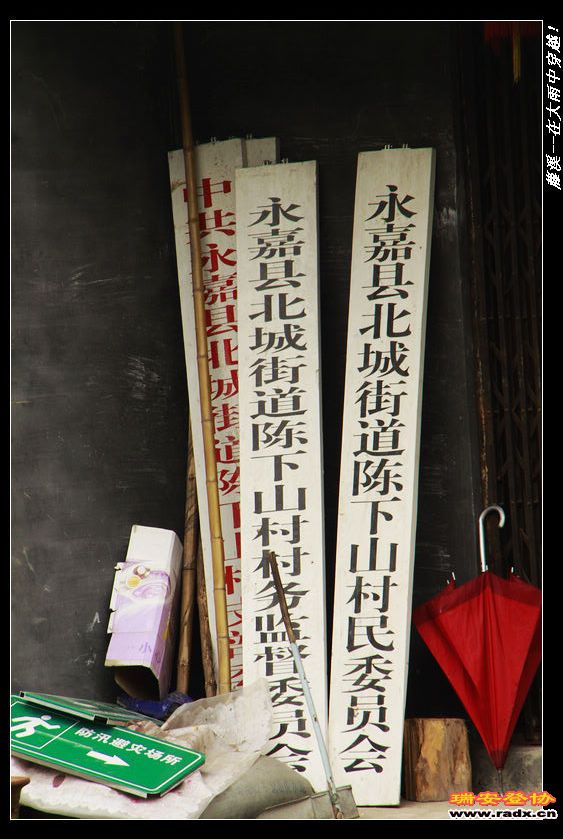 中共永嘉县北城街道陈下山村
永嘉县北城街道陈下山村村务监督委员会
永嘉县北城街道陈下山村民委员会
防汛避灾场所
小
藤溪--在大雨中穿越!
瑞安登协
www.radx.cn